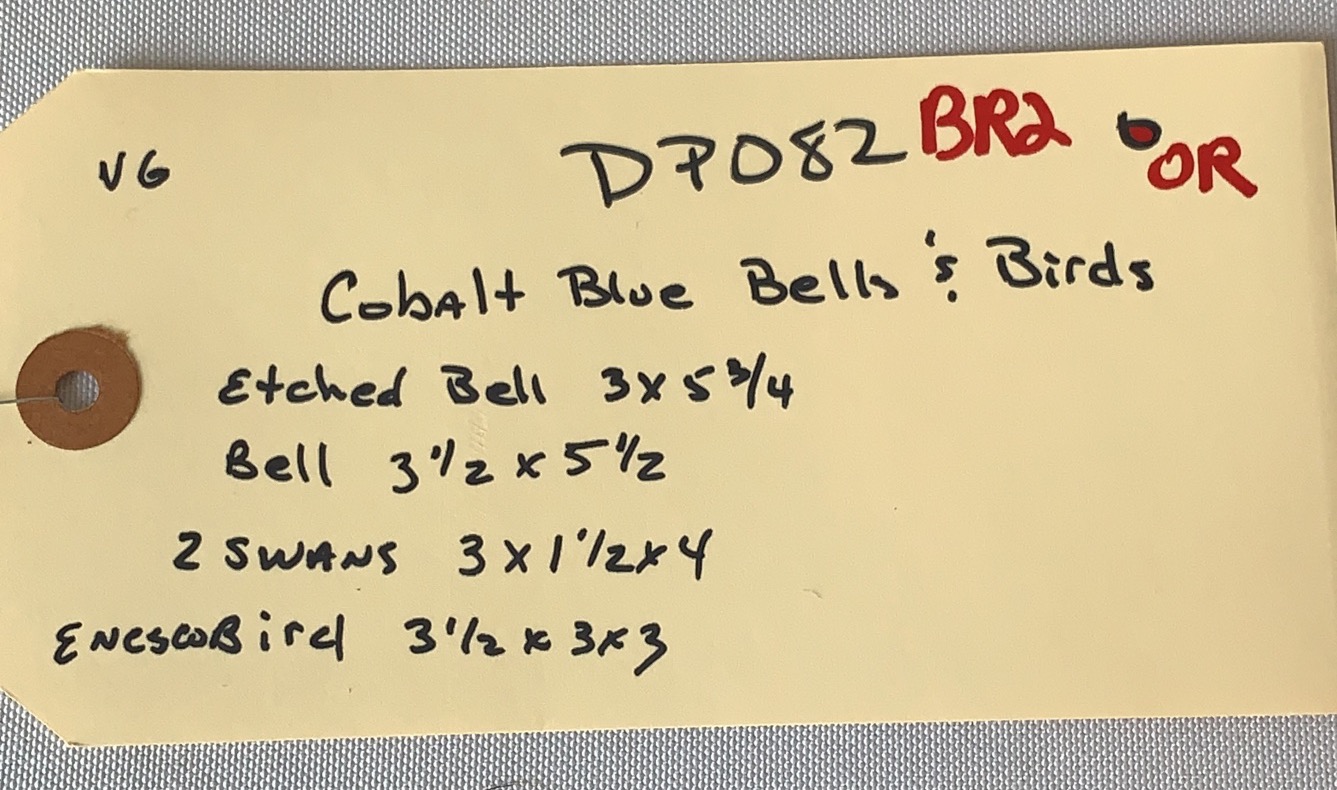 VG DP082 BR2 OR
Cobalt Blue Bells & Birds
Etched Bell 3 x 5 3/4
Bell 3 1/2 x 5 1/2
2 SWANS 3 x 1 1/2 x 4
Enesco Bird 3 1/2 x 3 x 3